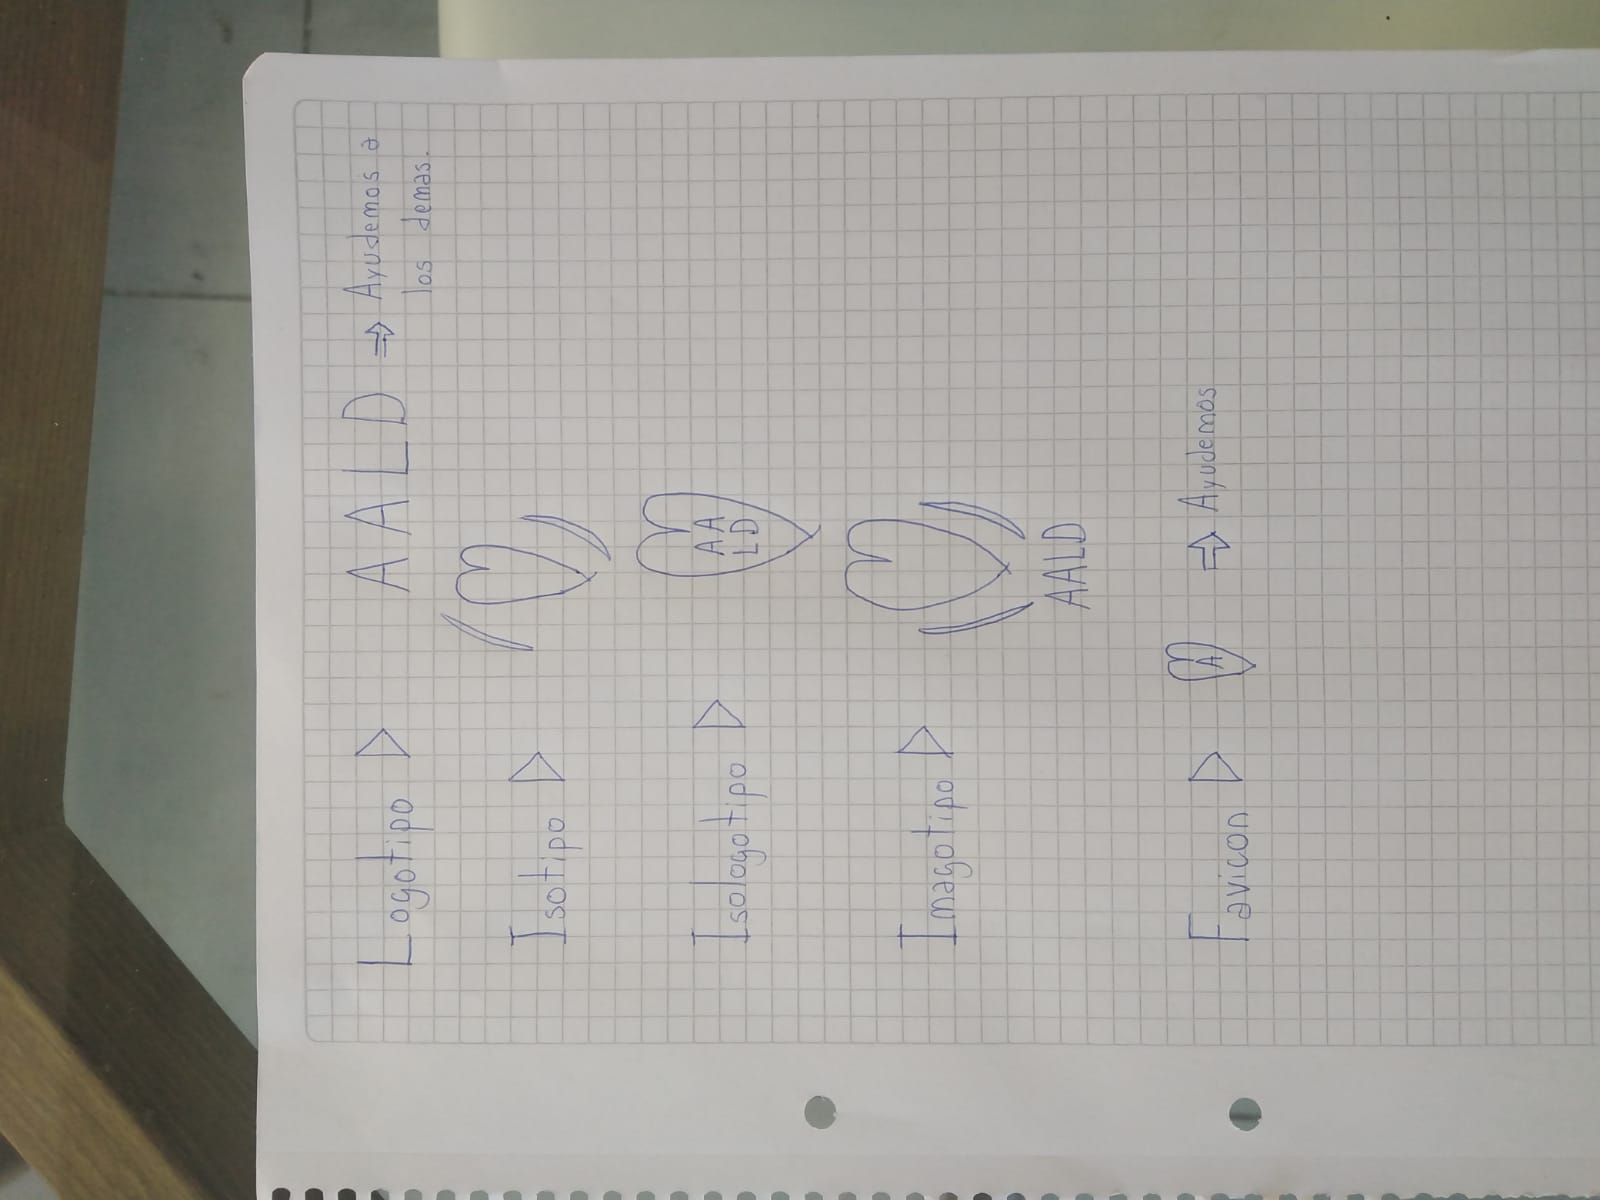 Logotipo ▷ AALD ⇒ Ayudemos a
los demas.
Isotipo ▷
Isologotipo ▷ AA
LD
Imagotipo ▷
AALD
Favicon ▷ A ⇒ Ayudemos